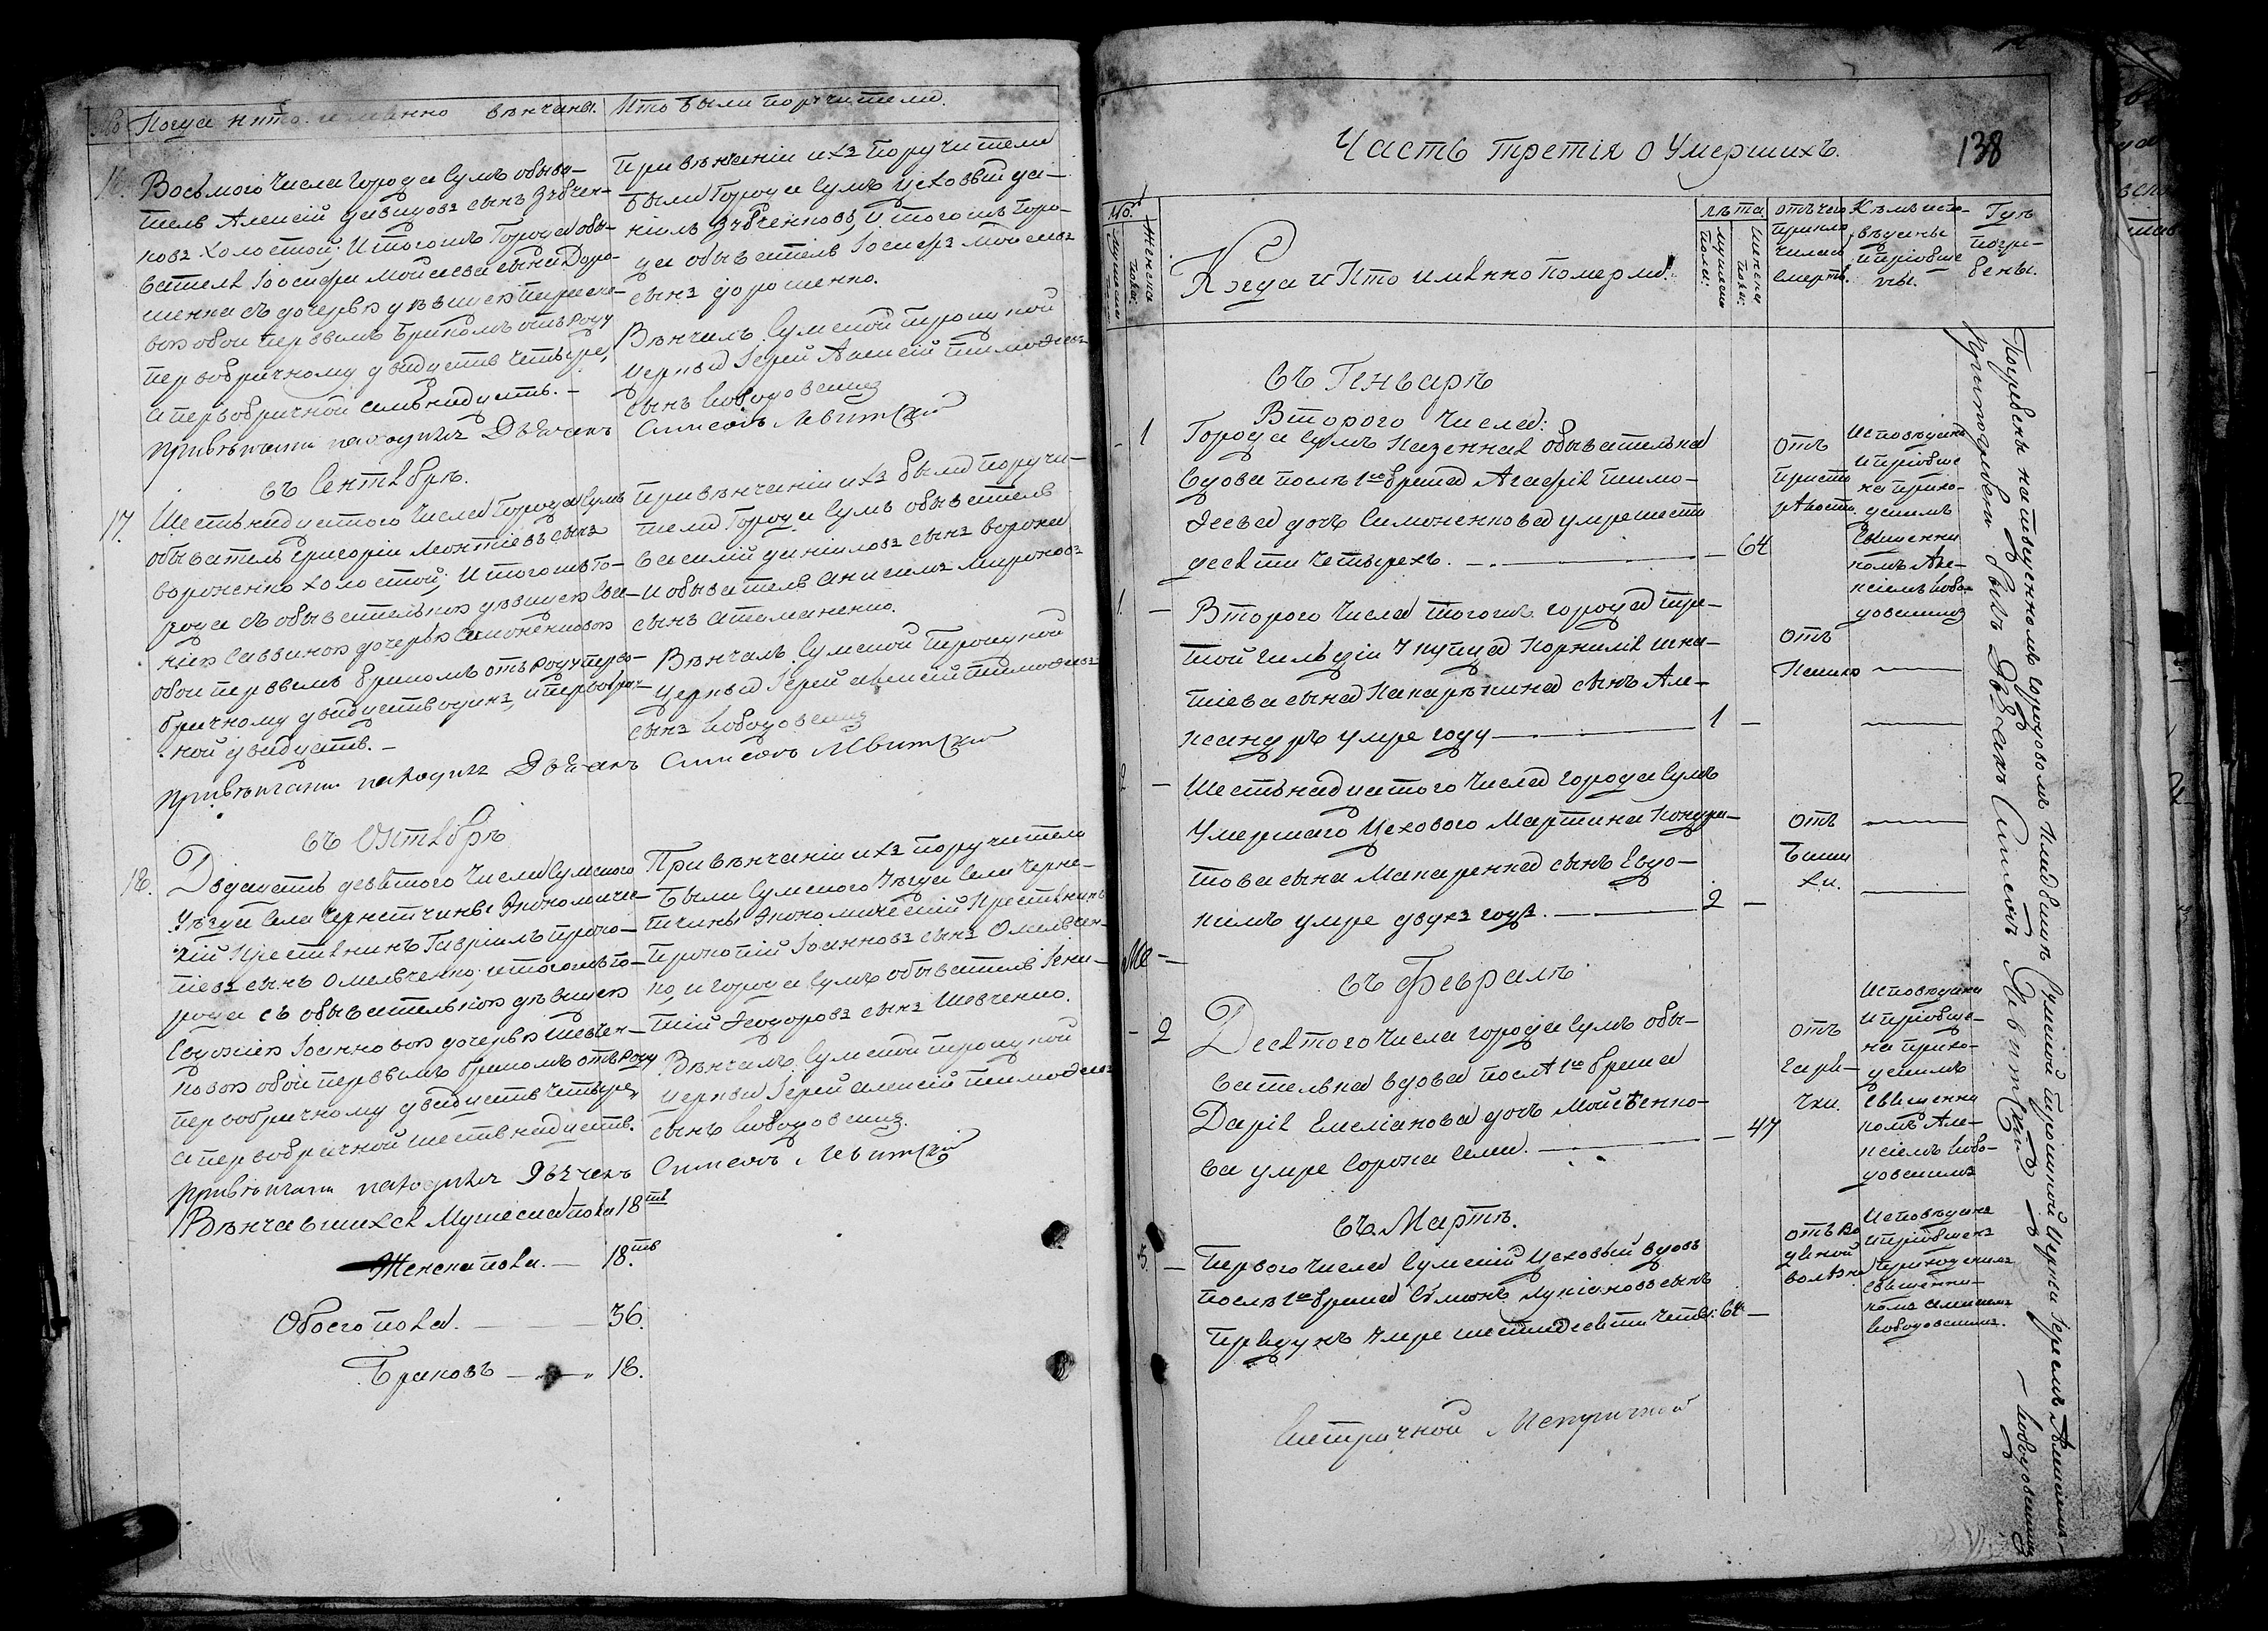 № Когда и кто именно вѣнчаны. Кто были поручители.
16. Восьмого числа города Сумъ обыва-
тель Алексій Давидовъ сынъ Зъбчен-
ковъ холостой; И тогожъ города обы-
вателя Іосифа Мойсеева сына Доро-
шенка съ дочерью дѣвицею
вою обои первымъ бракомъ отъ роду
первобрачному двадцать четыре,
а первобрачной семьнадцать. –
При вѣнчаніи находился Дьячекъ
При вѣнчаніи ихъ поручители
были города Сумъ цеховый Да-
ніилъ Зъбченковъ, и тогожъ горо-
да обыватель Іосифъ Мойсеевъ
сынъ Дорошенко.
Вѣнчалъ Сумской Троицкой
церкви Іерей Алексій Тимофеевъ
сынъ
Симеонъ Левитскій
въ Сентябрѣ.
17. Шестьнадцатого числа города Сумъ
обыватель Григорій Леонтіевъ сынъ
Вороненко холостой; И тогожъ го-
рода съ обывательскою дѣвицею
Саввиною дочерью Симоненковою
обои первымъ бракомъ отъ роду перво-
брачному двадцать одинъ, и первобрач-
ной двадцать. –
При вѣнчаніи находился Дьячекъ
При вѣнчаніи ихъ были поручи-
тели города Сумъ обыватель
Василій Даніиловъ сынъ Ворона
и обыватель Анисимъ Мироновъ
сынъ Атаманенко.
Вѣнчалъ Сумской Троицкой
церкви Іерей Алексій Тимофеевъ
сынъ
Симеонъ Левитскій
въ Октябрѣ
18. Двадцать девятого числа Сумского
Уѣзда села Чернетчины Экономиче-
скій крестьянинъ Гавріилъ Проко-
піевъ сынъ Омельченко; и тогожъ го-
рода съ обывательскою дѣвицею
Евдокіею Іоанновою дочерью Шевчен-
ковою обои первымъ бракомъ отъ роду
первобрачному двадцать четыре,
а первобрачной шестьнадцать.
При вѣнчаніи находился Дьячекъ
При вѣнчаніи ихъ поручители
были Сумского Уѣзда села Черне-
тчины Экономическій крестьянинъ
Прокопій Іоанновъ сынъ Омельчен-
ко, и города Сумъ обыватель Игна-
тій Феодоровъ сынъ Шевченко.
Вѣнчалъ Сумской Троицкой
церкви Іерей Алексій Тимофеевъ
сынъ
Симеонъ Левитскій
Вѣнчавшихся Мужеска пола 18ть
Женска пола. — 18.ть
Обоего пола. — 36.
Браковъ — 18.
138
Часть третія о Умершихъ.
№.
Мужеска
Женска пола:
Когда и Кто имянно померли.
лѣта
мужеска пола:
женска пола:
отъ чего приклю чилась смерть.
Кѣмъ испо- вѣданы и пріобще ны.
Гдѣ погре- бены.
въ Генварѣ
Второго числа:
- 1 Города Сумъ казенная обывателька
вдова послѣ 1го брака Агафія Тимо-
феева дочь Симоненкова умре шести
десяти четырехъ. — 64
отъ
старости
Исповѣдана
и пріобще
на прихо-
дскимъ
священни
комъ Але-
ксіемъ
1. – Второго числа тогожъ города тре-
той гильдіи купца Корнилія Игна-
тіева сына сынъ Але-
ксандръ умре году — 1 –
отъ
Кашлю
2 – Шестьнадцатого числа города Сумъ
умершаго цехового Мартина Кондра-
това сына Макаренка сынъ Евдо-
кимъ умре двухъ годъ. — 2 –
отъ
въ Февралѣ.
- 2 Десятого числа города Сумъ обы-
вателька вдова послѣ 1го брака
Дарія Емеліанова дочь
ва умре сорока семи. — 47
отъ
горя-
чки.
Исповѣдана
и пріобще-
на прихо-
дскимъ
священни
комъ Але-
ксіемъ
въ Мартѣ.
3. – Первого числа Сумскій цеховый вдовъ
послѣ 1го брака Сѵмонъ Лукіановъ сынъ
умре шестидесяти четы: 64 –
отъ во
дяной
болѣзни
Исповѣданъ
и пріобщенъ
приходскимъ
священни-
комъ Алексіемъ
Погребены на священномъ городовомъ кладбищѣ Сумской Троицкой церкви Іереемъ Алексіемъ
При погребеніи былъ Дьячекъ Симеонъ Левитскій